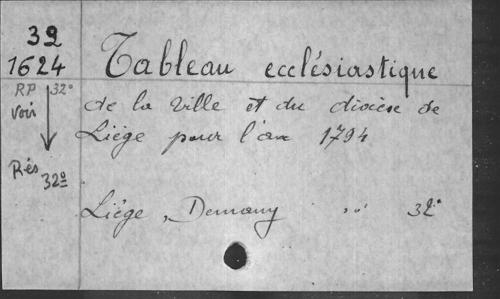 32
1624
Tableau ecclésiastique
RP 32°
voir
de la Ville et du diocèse de
Liége pour l'an 1794
Rés 32°
Liége, Demany ,, 32°